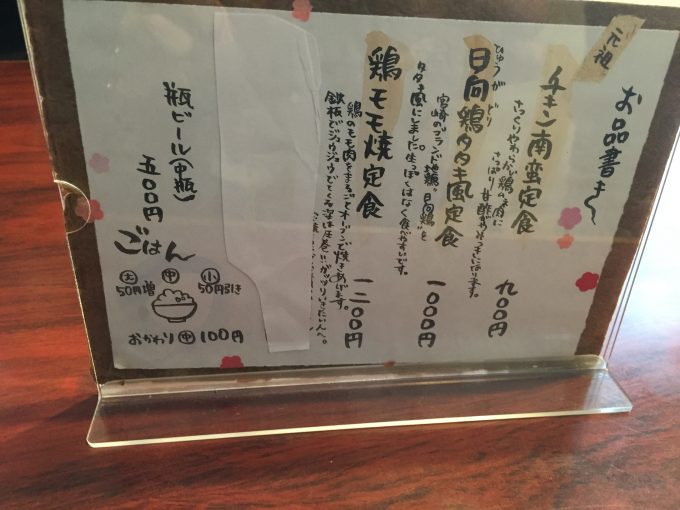 お品書き〜
元祖
チキン南蛮定食
さっくりやわらかい鶏のお肉に
さっぱり甘酢がやみつきになります。
九〇〇円
ひゅうがどり
日向鶏タタキ風定食
宮崎のブランド地鶏“日向鶏”を
タタキ風にしました。生っぽくはなく食べやすいです。
一〇〇〇円
鶏モモ焼定食
鶏のモモ肉をまるごとオーブンで焼きあげます。
鉄板でジュウジュウでてくる姿は圧巻!!ガッツリいきたい人へ。
一二〇〇円
瓶ビール(中瓶)
五〇〇円
ごはん
大 中 小
50円増 50円引き
おかわり 中 100円